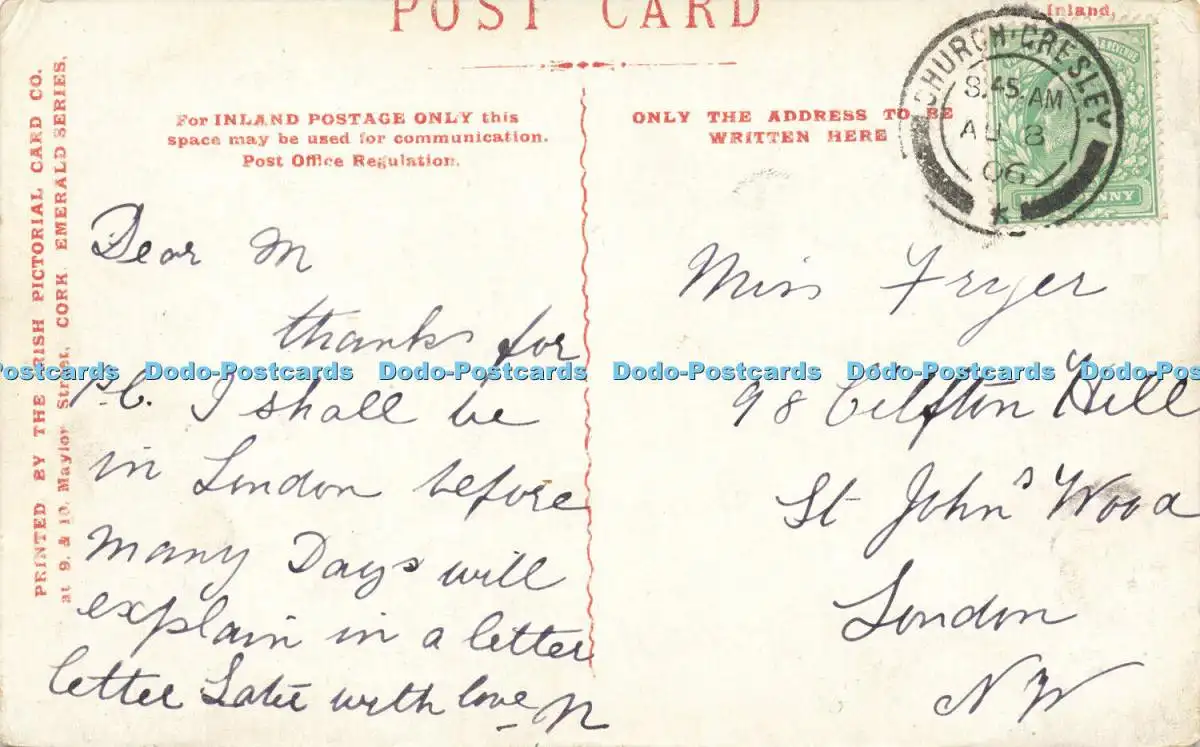 POST CARD
Inland,
CHURCH·GRESLEY
8.45 AM
AU 8
06
REVENUE
PENNY
PRINTED BY THE IRISH PICTORIAL CARD CO.
at 9. & 10. Maylor Street, CORK. EMERALD SERIES.
For INLAND POSTAGE ONLY this
space may be used for communication.
Post Office Regulation.
ONLY THE ADDRESS TO BE
WRITTEN HERE
Dear M
thanks for
P.C. I shall be
in London before
many Days will
explain in a letter
letter Late with love N
Miss Fryer
98 Clifton Hill
St John's Wood
London
NW
Dodo-Postcards Dodo-Postcards Dodo-Postcards Dodo-Postcards Dodo-Postcards Dodo-Postcards